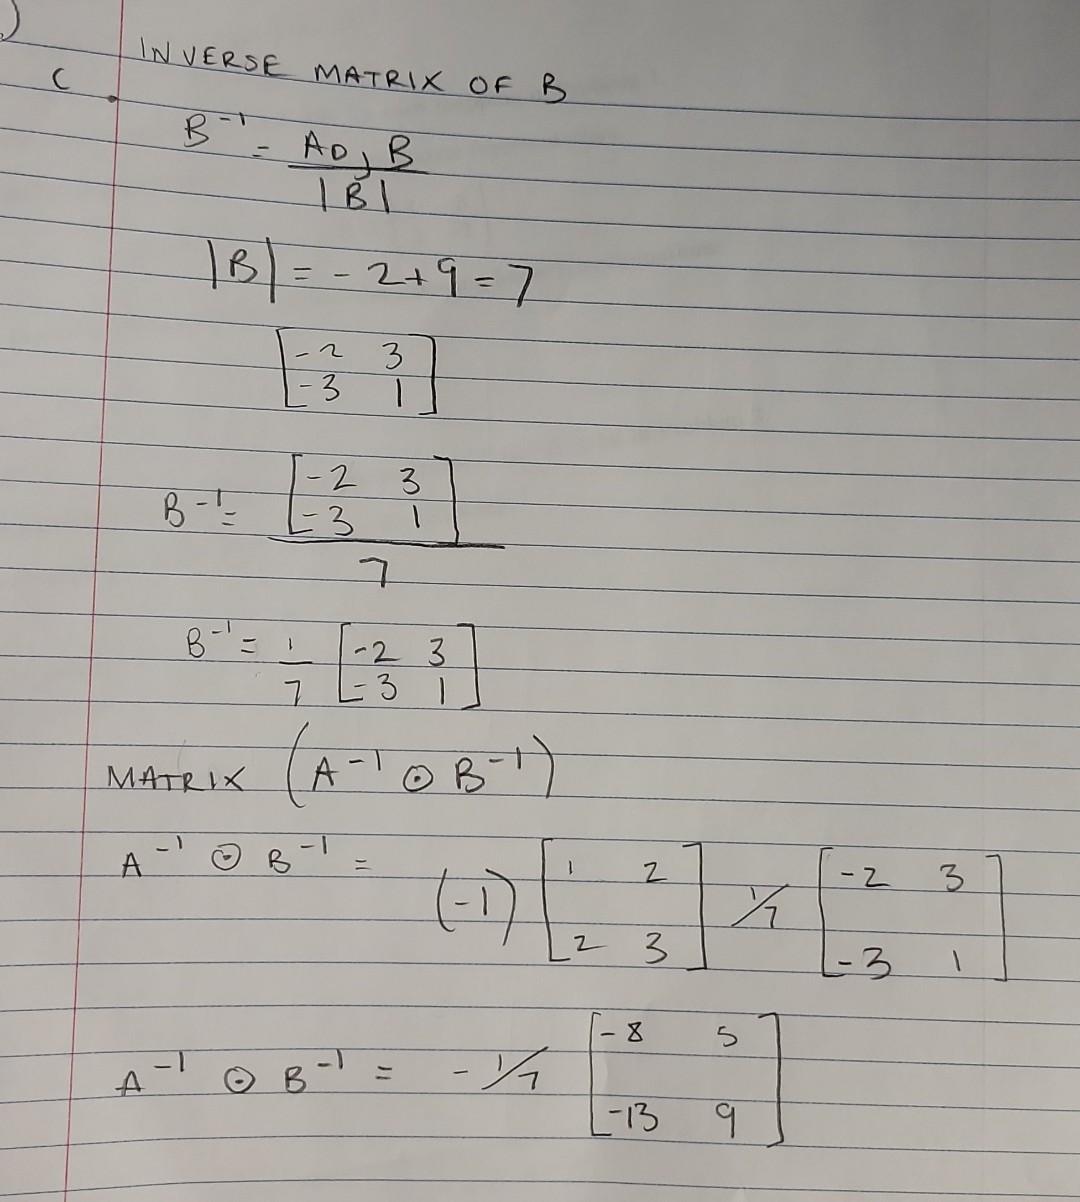 INVERSE MATRIX OF B
C.
B⁻¹ = ADJ B
|B|
|B| = - 2 + 9 = 7
[-2 3
-3 1]
B⁻¹ = [-2 3
-3 1]
7
B⁻¹ = 1/7 [-2 3
-3 1]
MATRIX (A⁻¹ ⊙ B⁻¹)
A⁻¹ ⊙ B⁻¹ = (-1) [1 2 1/7 [-2 3
2 3] -3 1]
A⁻¹ ⊙ B⁻¹ = - 1/7 [-8 5
-13 9]